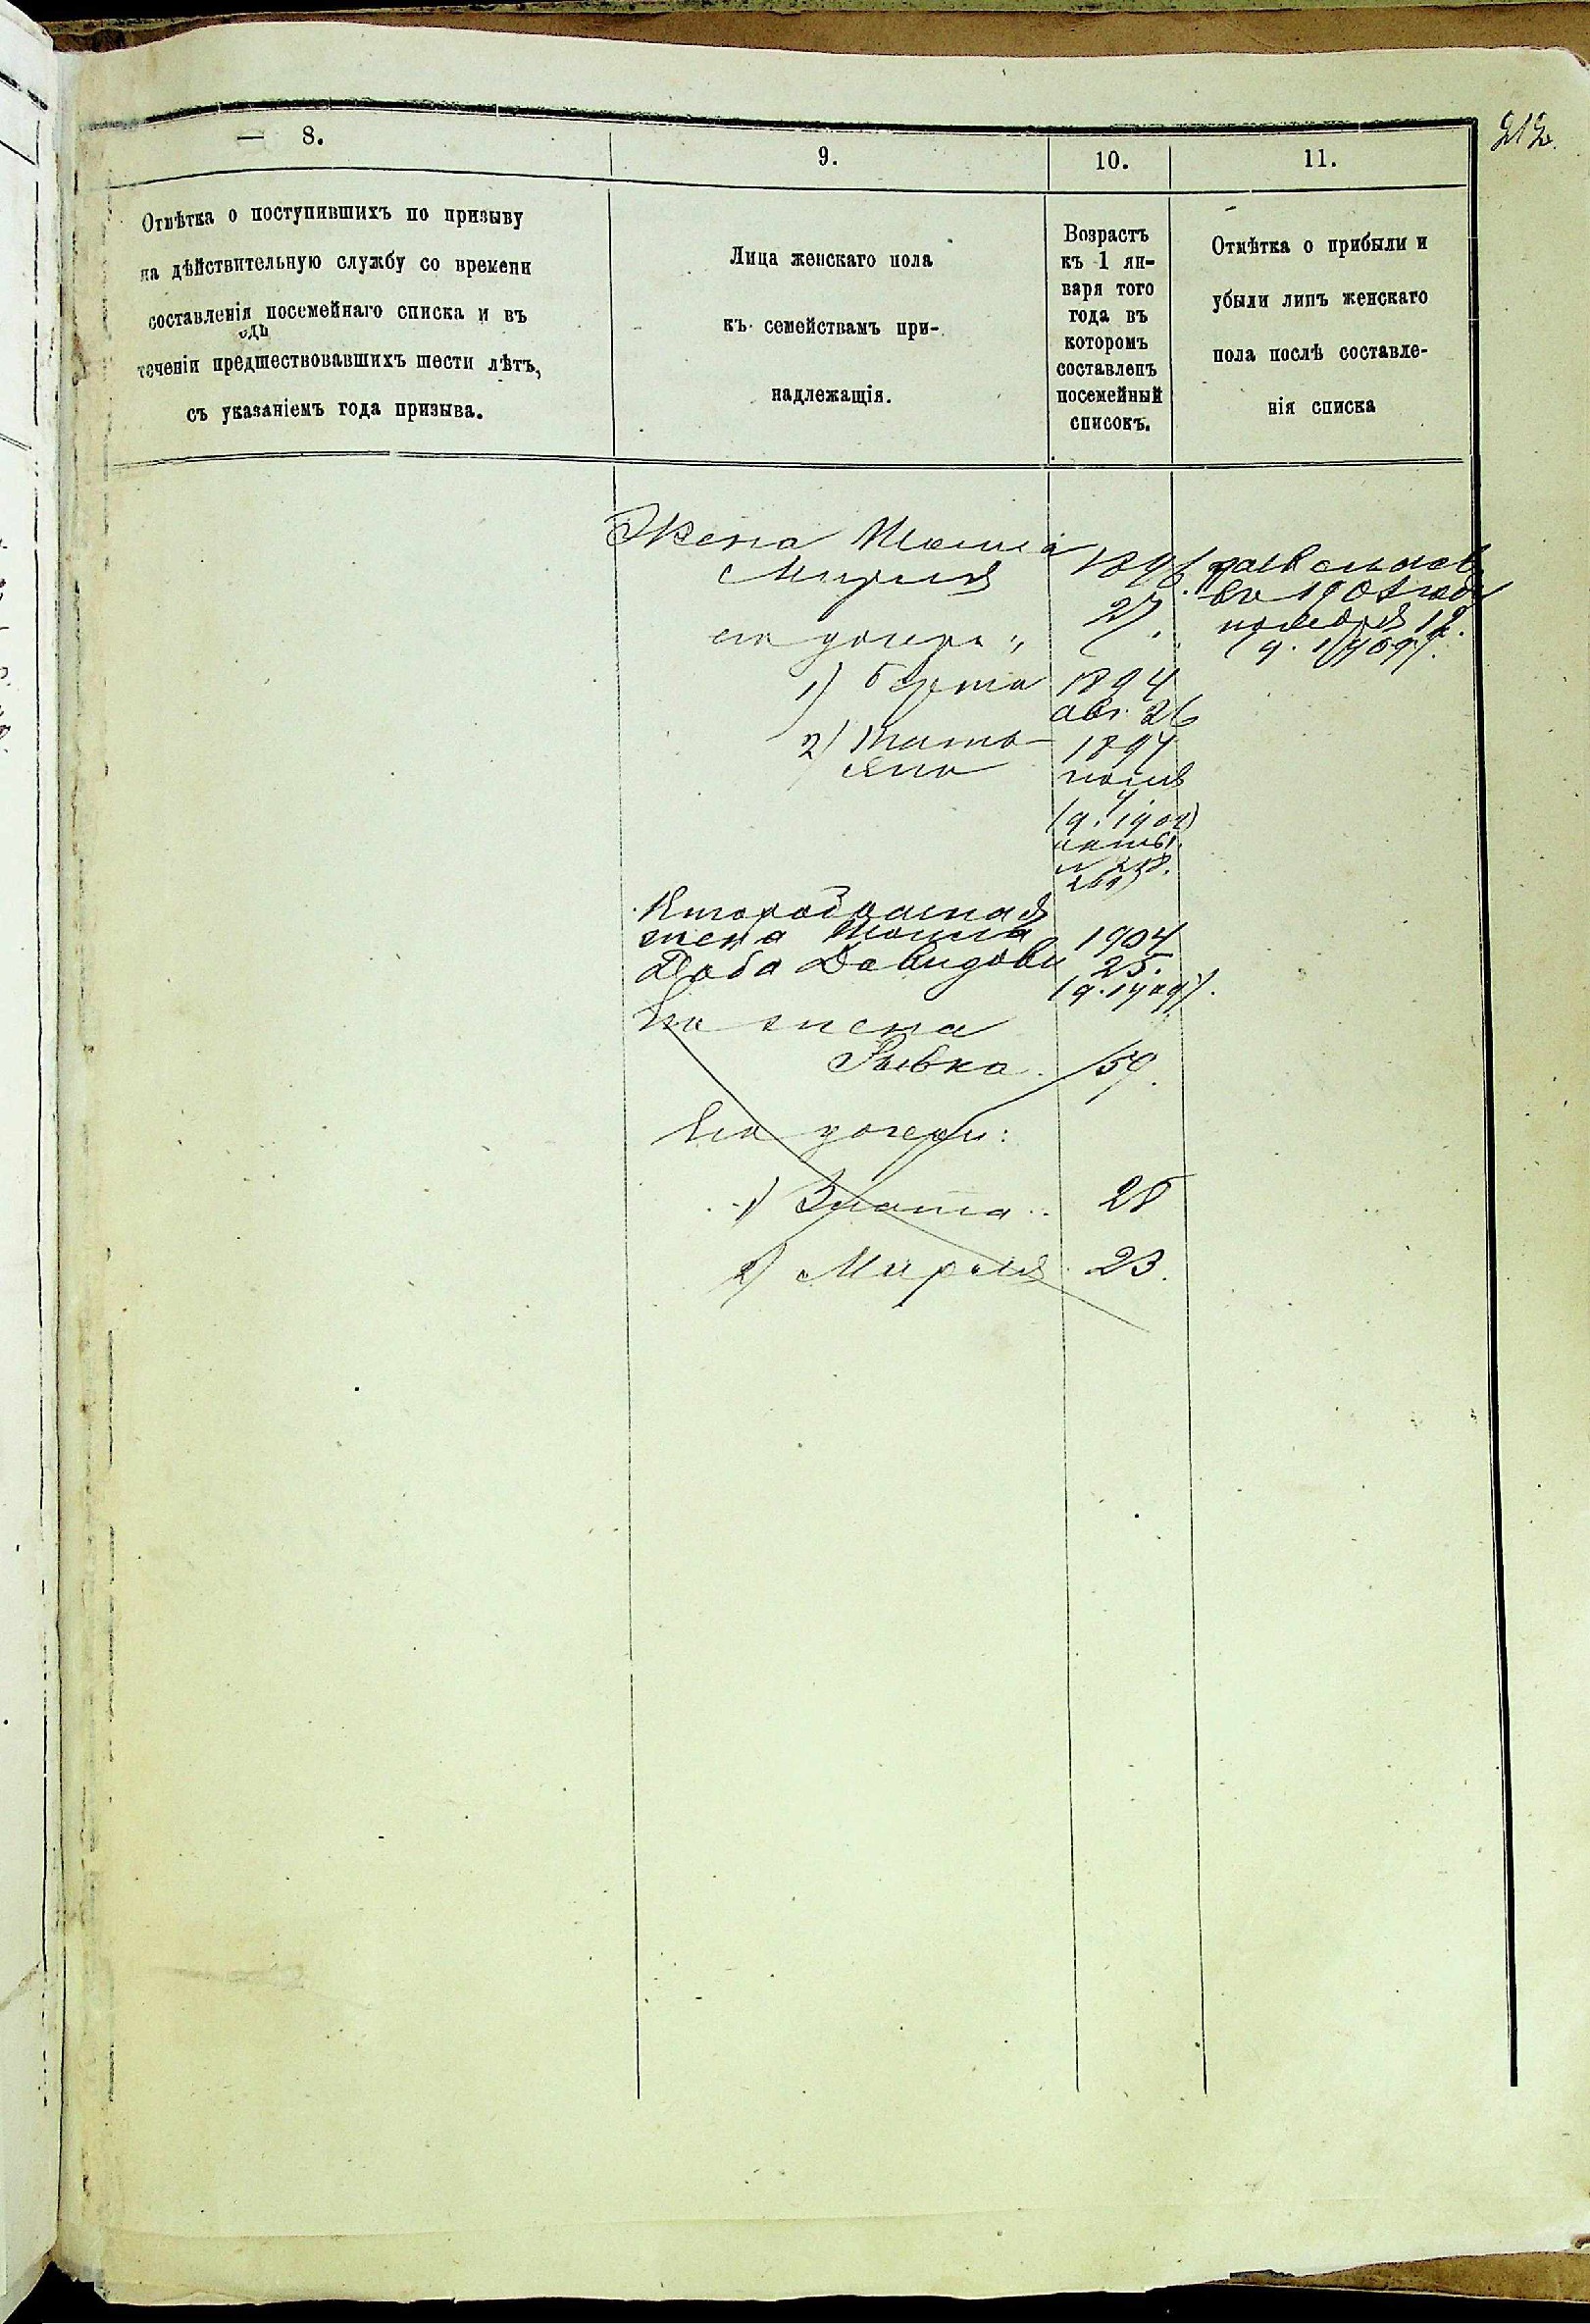 212.
8.
9.
10.
11.
Отмѣтка о поступившихъ по призыву
на дѣйствительную службу со времени
составленія посемейнаго списка и въ
теченіи предшествовавшихъ шести лѣтъ,
съ указаніемъ года призыва.
Лица женскаго пола
къ семействамъ при-
надлежащія.
Возрастъ
къ 1 ян-
варя того
года въ
которомъ
составленъ
посемейный
списокъ.
Отмѣтка о прибыли и
убыли лицъ женскаго
пола послѣ составле-
нія списка
Жена
Мирля
27.
его дочери:
1) Берта 1894
авг. 26
2) Татья-
яна
1897
(д. 1902)
Второбрачная
жена 1904
Давидов 25.
Его жена
Рывка. 59.
Его дочери:
1) Злата 28
2) Мирля 23.